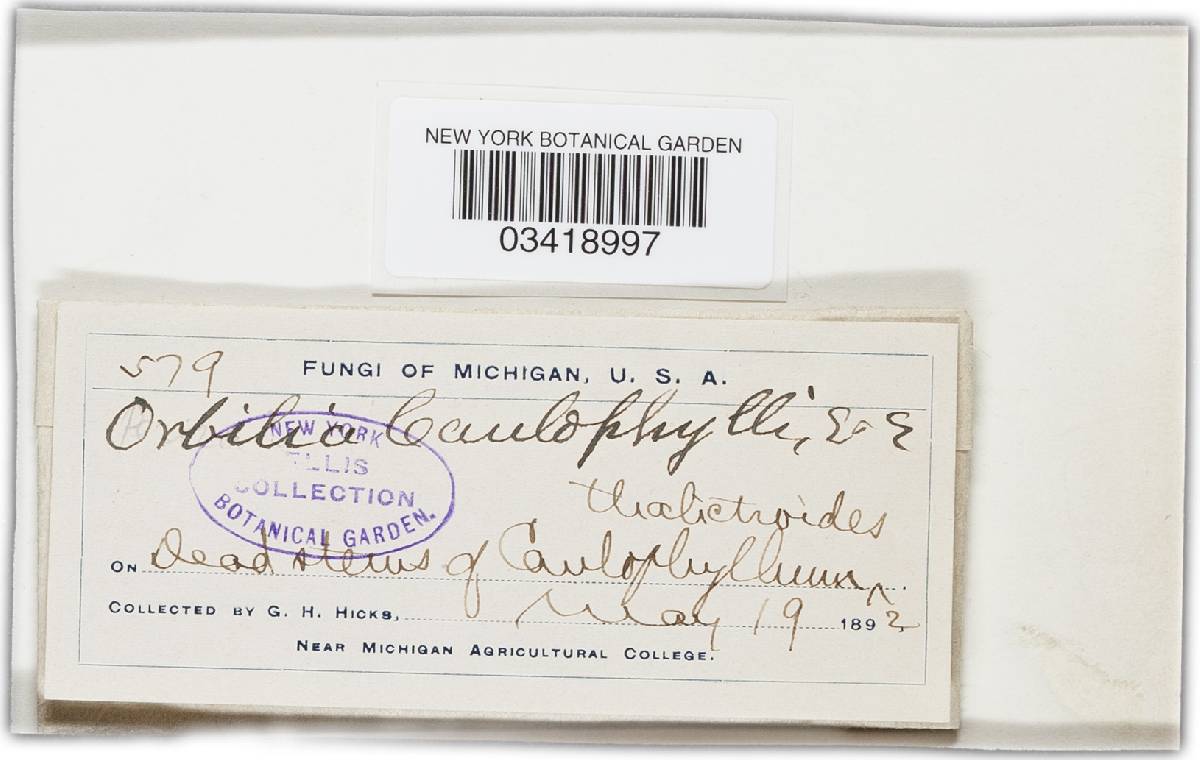 NEW YORK BOTANICAL GARDEN
03418997
579
FUNGI OF MICHIGAN, U. S. A.
Orbilia Caulophylli, E & E
NEW YORK
ELLIS
COLLECTION
BOTANICAL GARDEN.
thalictroides
ON Dead stems of Caulophyllum
COLLECTED BY G. H. HICKS, May 19 1892
NEAR MICHIGAN AGRICULTURAL COLLEGE.